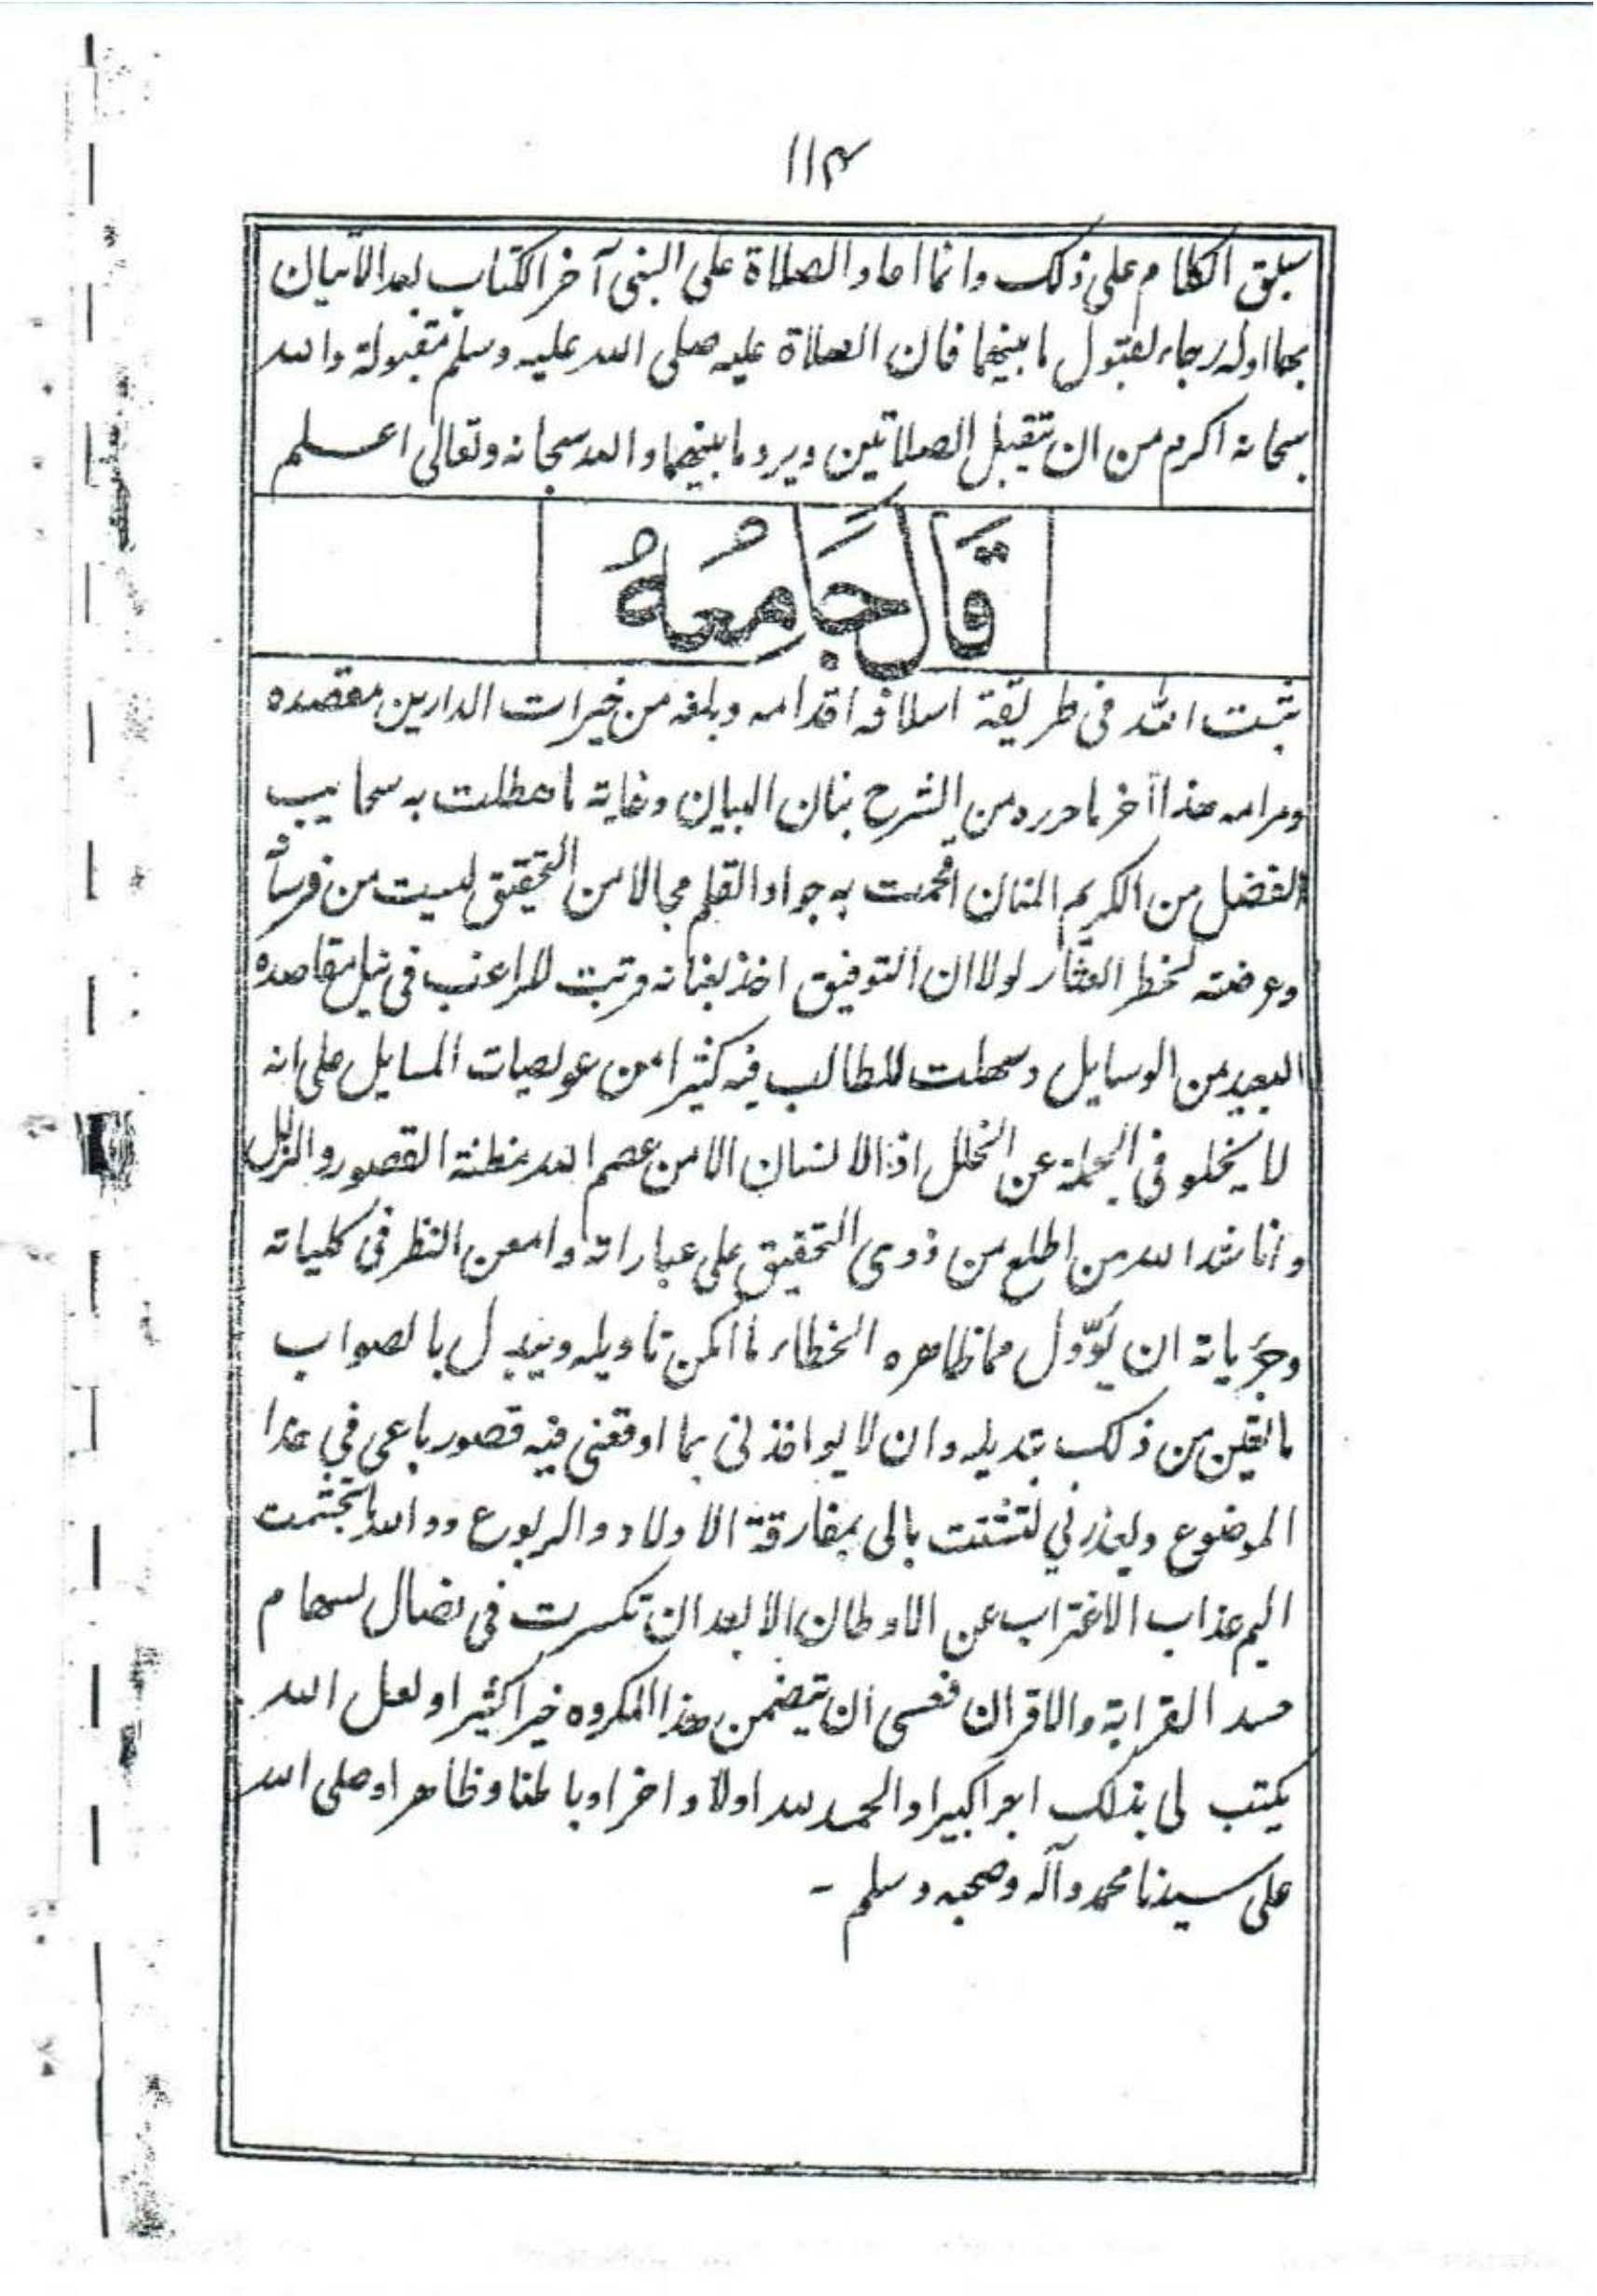 ۱۱۴
سبق الكلام على ذلك وانما اعاد الصلاة على النبى آخر الكتاب بعد الاتيان
بها اوله رجاء لقبول ما بينهما فان الصلاة عليه صلى الله عليه وسلم مقبولة والله
سبحانه اكرم من ان تقبل الصلاتين ويرد ما بينهما والله سبحانه وتعالى اعلم
قَالَ جَامِعُهُ
ثبت الله فى طريقة اسلافه اقدامه وبلغه من خيرات الدارين مقصده
ومرامه هذا آخر ما حرره من الشرح بنان البيان وغاية ما هطلت به سحايب
الفضل من الكريم المنان اقحمت به جواد القلم مجالا من التحقيق ليست من فرسانه
وعرضته لخطر العثار لولا ان التوفيق اخذ بعنانه قربت للراغب فى نيل مقاصده
البعيد من الوسايل وسهلت للطالب فيه كثيرا من عويصات المسايل على انه
لا يخلو فى الجملة عن الخلل اذ الانسان الا من عصم الله مظنة القصور والزلل
وانا شد الله من اطلع من ذوى التحقيق على عباراته وامعن النظر فى كلياته
وجزياته ان يؤول مما ظاهره الخطاء ما امكن تاويله ويبدل بالصواب
ما تعين من ذلك تبديله وان لا يواخذنى بما اوقعنى فيه قصور باعى في هذا
الموضوع ويعذرني لتشتت بالى بمفارقة الاولاد والربوع ووالله ما تجشمت
اليم عذاب الاغتراب عن الاوطان الا بعد ان تكسرت فى نصال سهام
حسد القرابة والاقران فعسى ان يتضمن هذا المكروه خيرا كثيرا ولعل الله
يكتب لى بذلك اجرا كبيرا والحمد لله اولا واخرا وباطنا وظاهرا وصلى الله
على سيدنا محمد وآله وصحبه وسلم -